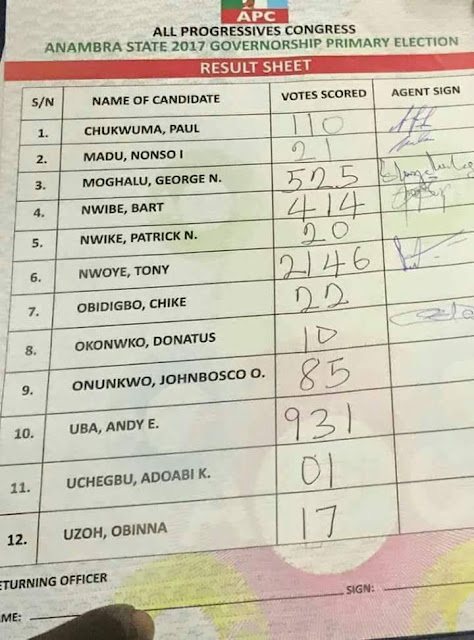 APC
ALL PROGRESSIVES CONGRESS
ANAMBRA STATE 2017 GOVERNORSHIP PRIMARY ELECTION
RESULT SHEET
S/N NAME OF CANDIDATE VOTES SCORED AGENT SIGN
1. CHUKWUMA, PAUL 110
2. MADU, NONSO I 21
3. MOGHALU, GEORGE N. 525
4. NWIBE, BART 414
5. NWIKE, PATRICK N. 20
6. NWOYE, TONY 2146
7. OBIDIGBO, CHIKE 22
8. OKONWKO, DONATUS 10
9. ONUNKWO, JOHNBOSCO O. 85
10. UBA, ANDY E. 931
11. UCHEGBU, ADOABI K. 01
12. UZOH, OBINNA 17
ETURNING OFFICER
AME: SIGN: